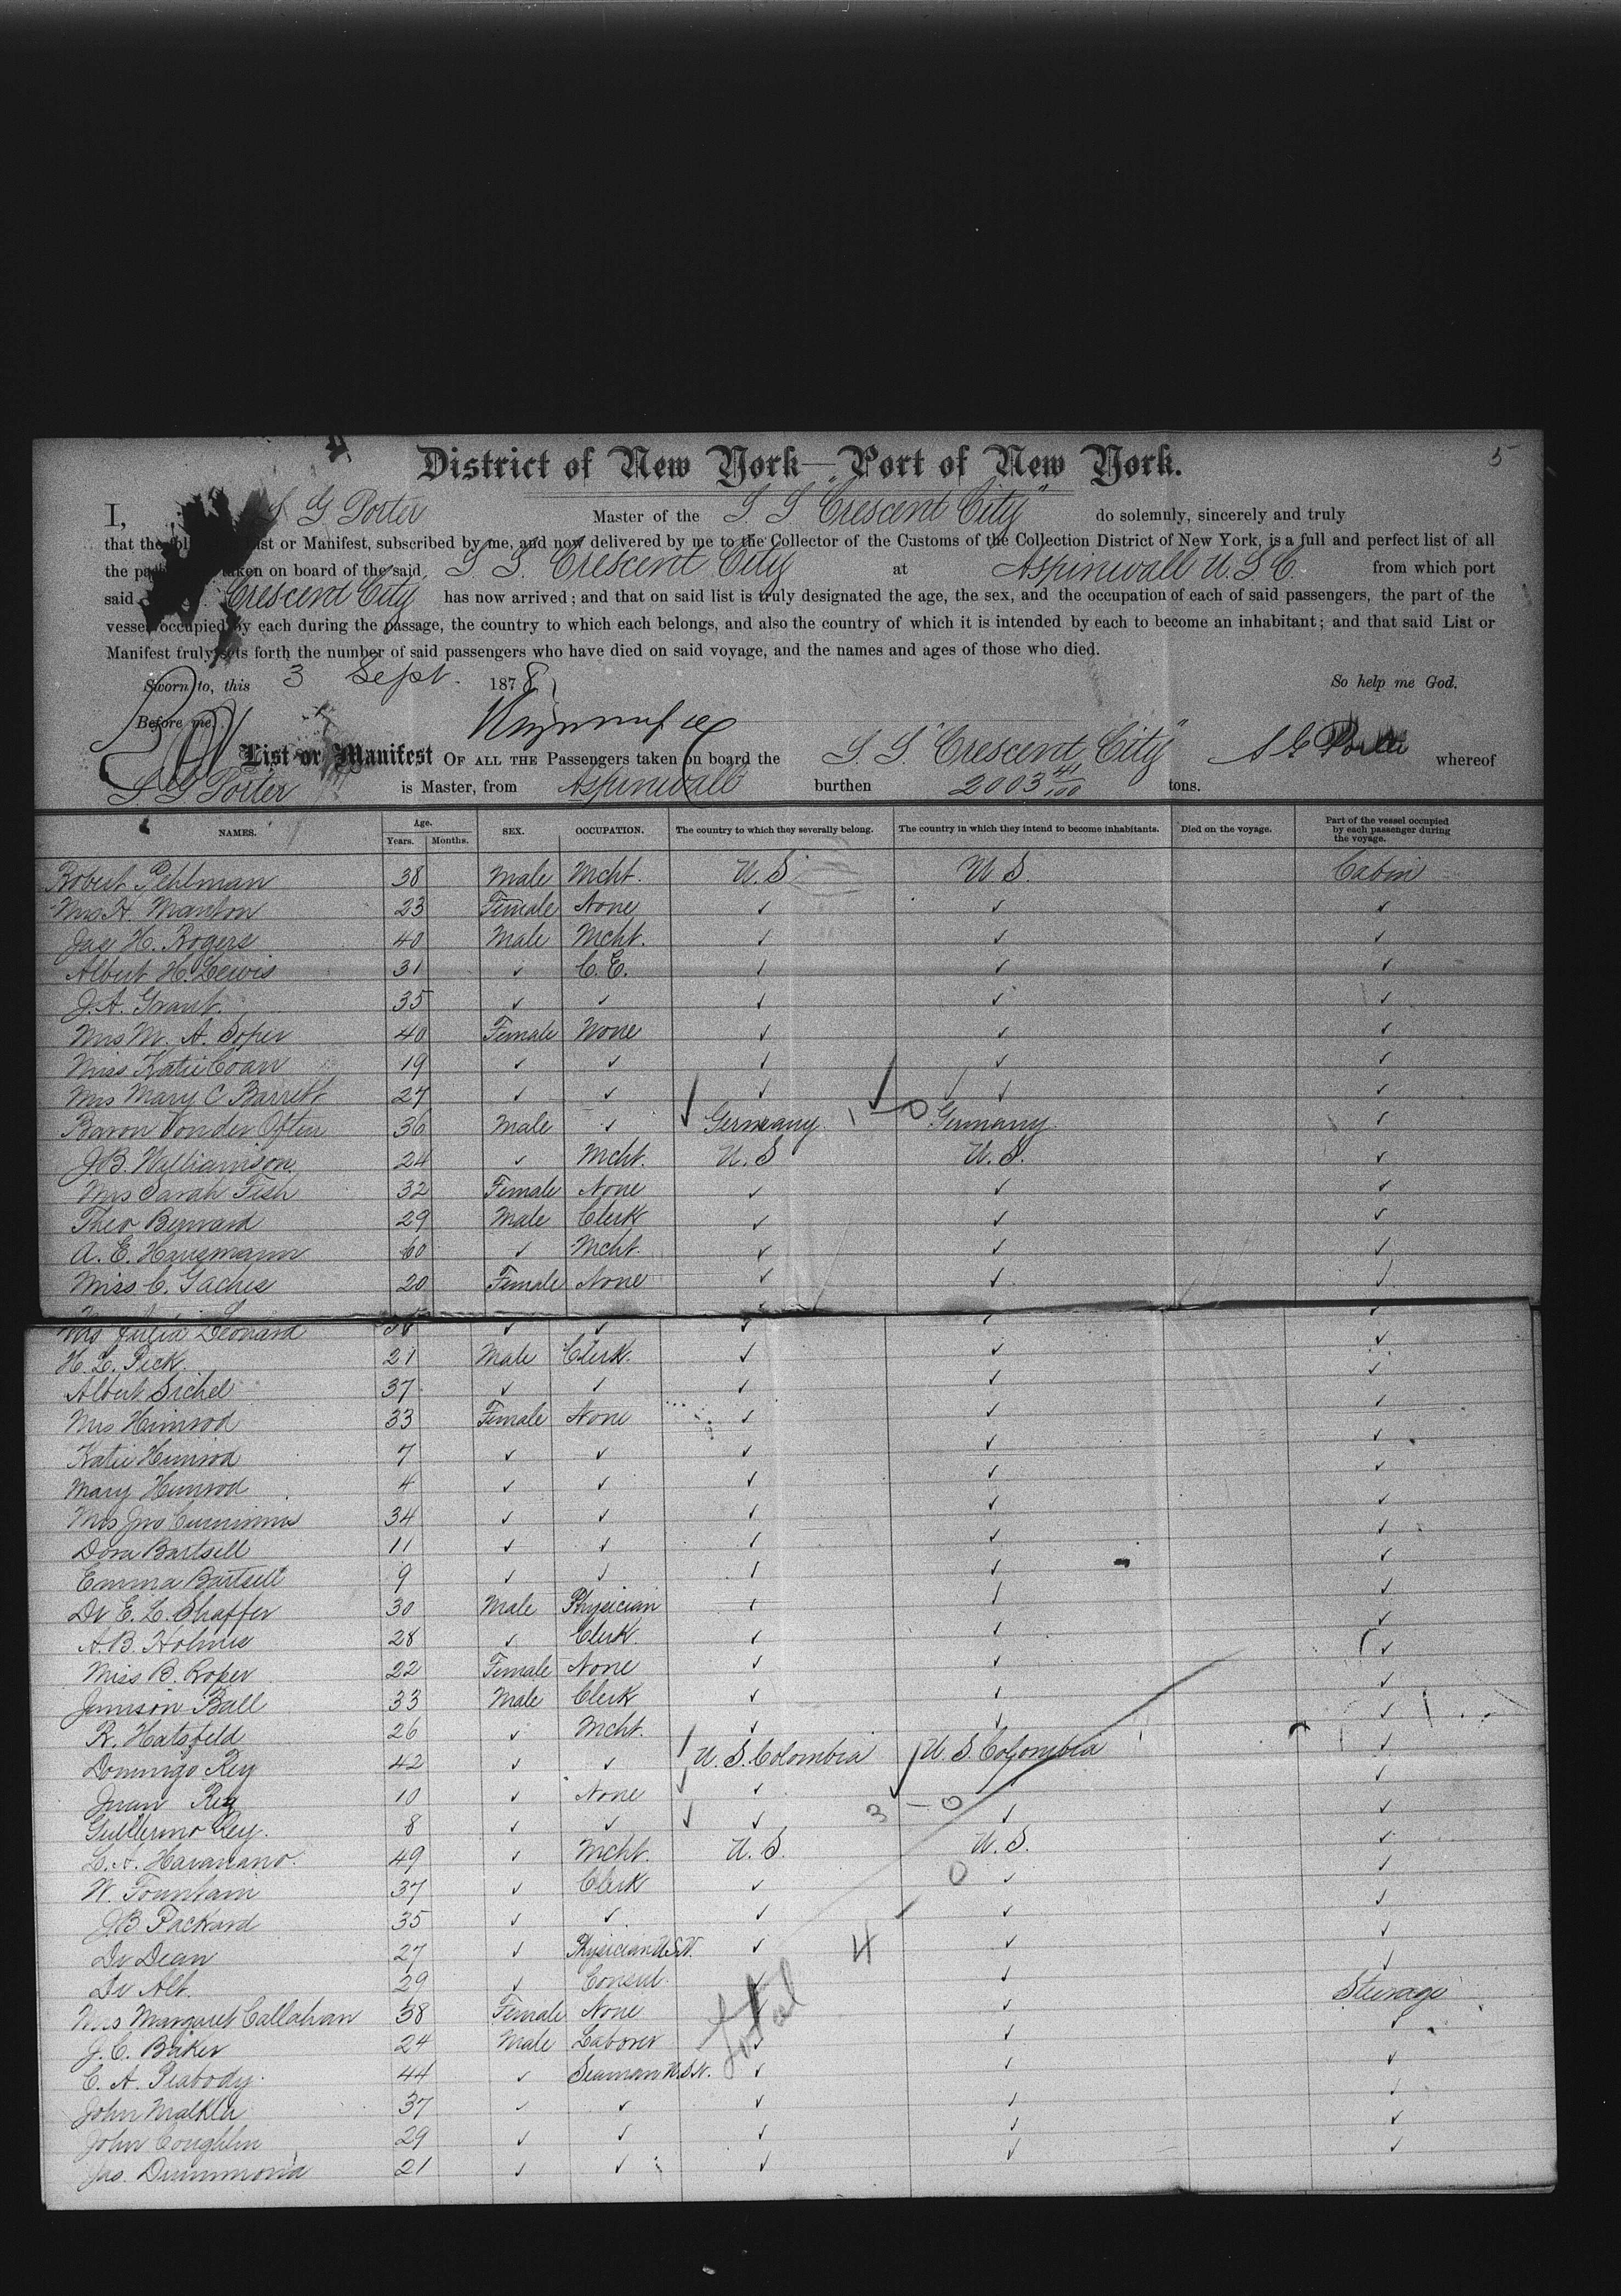 5
District of New York—Port of New York.
I, S G Porter Master of the S. S "Crescent City" do solemnly, sincerely and truly
that the List or Manifest, subscribed by me, and now delivered by me to the Collector of the Customs of the Collection District of New York, is a full and perfect list of all
the taken on board of the said S. S. Crescent City at Aspinwall U.S.C. from which port
said Crescent City has now arrived; and that on said list is truly designated the age, the sex, and the occupation of each of said passengers, the part of the
vessel occupied by each during the passage, the country to which each belongs, and also the country of which it is intended by each to become an inhabitant; and that said List or
Manifest truly sets forth the number of said passengers who have died on said voyage, and the names and ages of those who died.
Sworn to, this 3 Sept. 1878 So help me God.
Before me,
List or Manifest OF ALL THE Passengers taken on board the S. S. "Crescent City" S G Porter whereof
S G Porter is Master, from Aspinwall burthen 2003 41/100 tons.
NAMES. Age. Years. Months. SEX. OCCUPATION. The country to which they severally belong. The country in which they intend to become inhabitants. Died on the voyage. Part of the vessel occupied by each passenger during the voyage.
Robert Pehlman 38 Male Mcht. U.S. U.S. Cabin
Mrs H. Manton 23 Female None ✓ ✓ ✓
Jas H. Rogers 40 Male Mcht. ✓ ✓ ✓
Albert H. Lewis 31 ✓ C.E. ✓ ✓ ✓
J.A. Grant. 35 ✓ ✓ ✓ ✓ ✓
Mrs M. A. Soper 40 Female None ✓ ✓ ✓
Miss Katie Coan 19 ✓ ✓ ✓ ✓ ✓
Mrs Mary C Barrett 27 ✓ ✓ ✓ ✓ ✓
Baron Von der Often 36 Male ✓ Germany 1 - 0 Germany ✓
J.B. Williamson 24 ✓ Mcht. U.S U.S. ✓
Mrs Sarah Fish 32 Female None ✓ ✓ ✓
Theo Bernard 29 Male Clerk ✓ ✓ ✓
A. E. Hausmann 60 ✓ Mcht. ✓ ✓ ✓
Miss C. Gaches 20 Female None ✓ ✓ ✓
Mrs Julia Leonard ✓ ✓ ✓ ✓ ✓
H. L. Pick 21 Male Clerk. ✓ ✓ ✓
Albert Sichel 37 ✓ ✓ ✓ ✓ ✓
Mrs Himrod 33 Female None ✓ ✓ ✓
Katie Himrod 7 ✓ ✓ ✓ ✓ ✓
Mary Himrod 4 ✓ ✓ ✓ ✓ ✓
Mrs Jno Cummins 34 ✓ ✓ ✓ ✓ ✓
Dora Bartsell 11 ✓ ✓ ✓ ✓ ✓
Emma Bartsell 9 ✓ ✓ ✓ ✓ ✓
Dr E. L. Shaffer 30 Male Physician ✓ ✓ ✓
A.B. Holmes 28 ✓ Clerk. ✓ ✓ ✓
Miss B. Roper 22 Female None ✓ ✓ ✓
Jamison Ball 33 Male Clerk ✓ ✓ ✓
R. Hatsfeld 26 ✓ Mcht. ✓ ✓ ✓
Domingo Rey 42 ✓ ✓ U. S. Colombia U. S. Colombia ✓
Juan Rey 10 ✓ None ✓ ✓
Guillermo Rey. 8 ✓ ✓ ✓ 3 - 0 ✓ ✓
L. A. Havanano. 49 ✓ Mcht. U. S. U. S. ✓
W. Fountain 37 ✓ Clerk ✓ 0 ✓ ✓
J.B. Packard 35 ✓ ✓ ✓ ✓ ✓
Dr Dean 27 ✓ Physician U.S.N. ✓ 4 ✓ ✓
Dr Alt. 29 ✓ Consul. ✓ ✓ ✓
Mrs Margaret Callahan 38 Female None ✓ ✓ Steerage
J. C. Baker 24 Male Laborer ✓ ✓ ✓
C. A. Peabody. 44 ✓ Seaman U.S.N. ✓ ✓ ✓
John Malkla 37 ✓ ✓ ✓ ✓ ✓
John Coughlin 29 ✓ ✓ ✓ ✓ ✓
Jas. Drummond 21 ✓ ✓ ✓ ✓ ✓